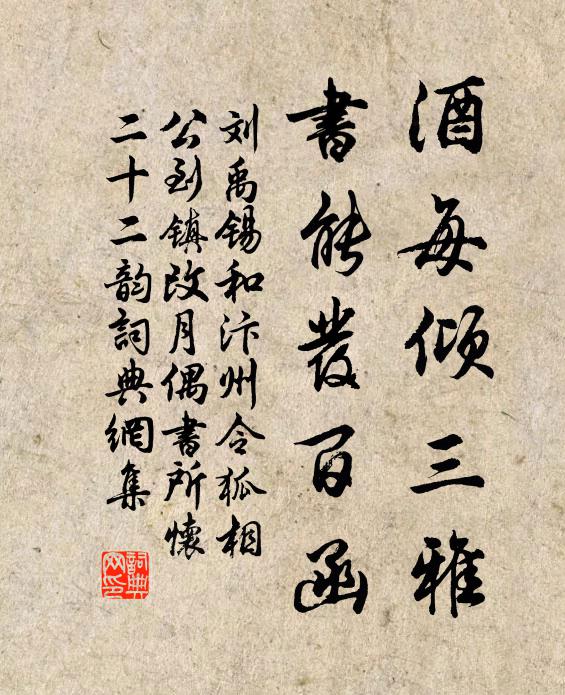 酒每倾三雅
書能發百函
刘禹锡和汴州令狐相
公到镇改月偶書所懷
二十二韵詞典網集
詞典
网印